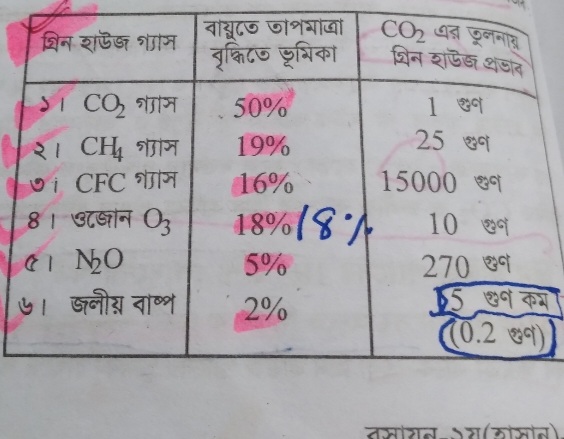 গ্রিন হাউজ গ্যাস | বায়ুতে তাপমাত্রা বৃদ্ধিতে ভূমিকা | CO₂ এর তুলনায় গ্রিন হাউজ প্রভাব
১। CO₂ গ্যাস | 50% | 1 গুণ
২। CH₄ গ্যাস | 19% | 25 গুণ
৩। CFC গ্যাস | 16% | 15000 গুণ
৪। ওজোন O₃ | 18% / 8% | 10 গুণ
৫। N₂O | 5% | 270 গুণ
৬। জলীয় বাষ্প | 2% | 5 গুণ কম
(0.2 গুণ)
রসায়ন-২য়(হাসান)